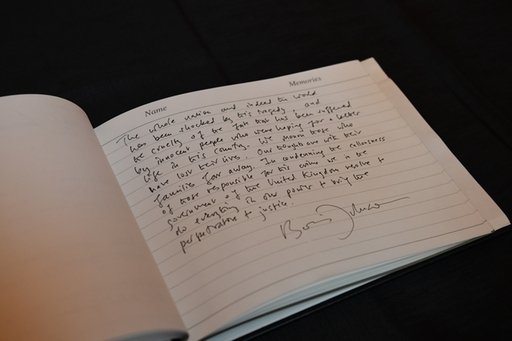 Name Memories
The whole nation and indeed the world
has been shocked by this tragedy, and
the cruelty of the fate that has been suffered
by innocent people who were hoping for a better
life in this country. We mourn those who
have lost their lives. Our thoughts are with their
families far away. In condemning the callousness
of those responsible for this crime we in the
government of the United Kingdom resolve to
do everything in our power to bring the
perpetrators to justice.
Boris Johnson